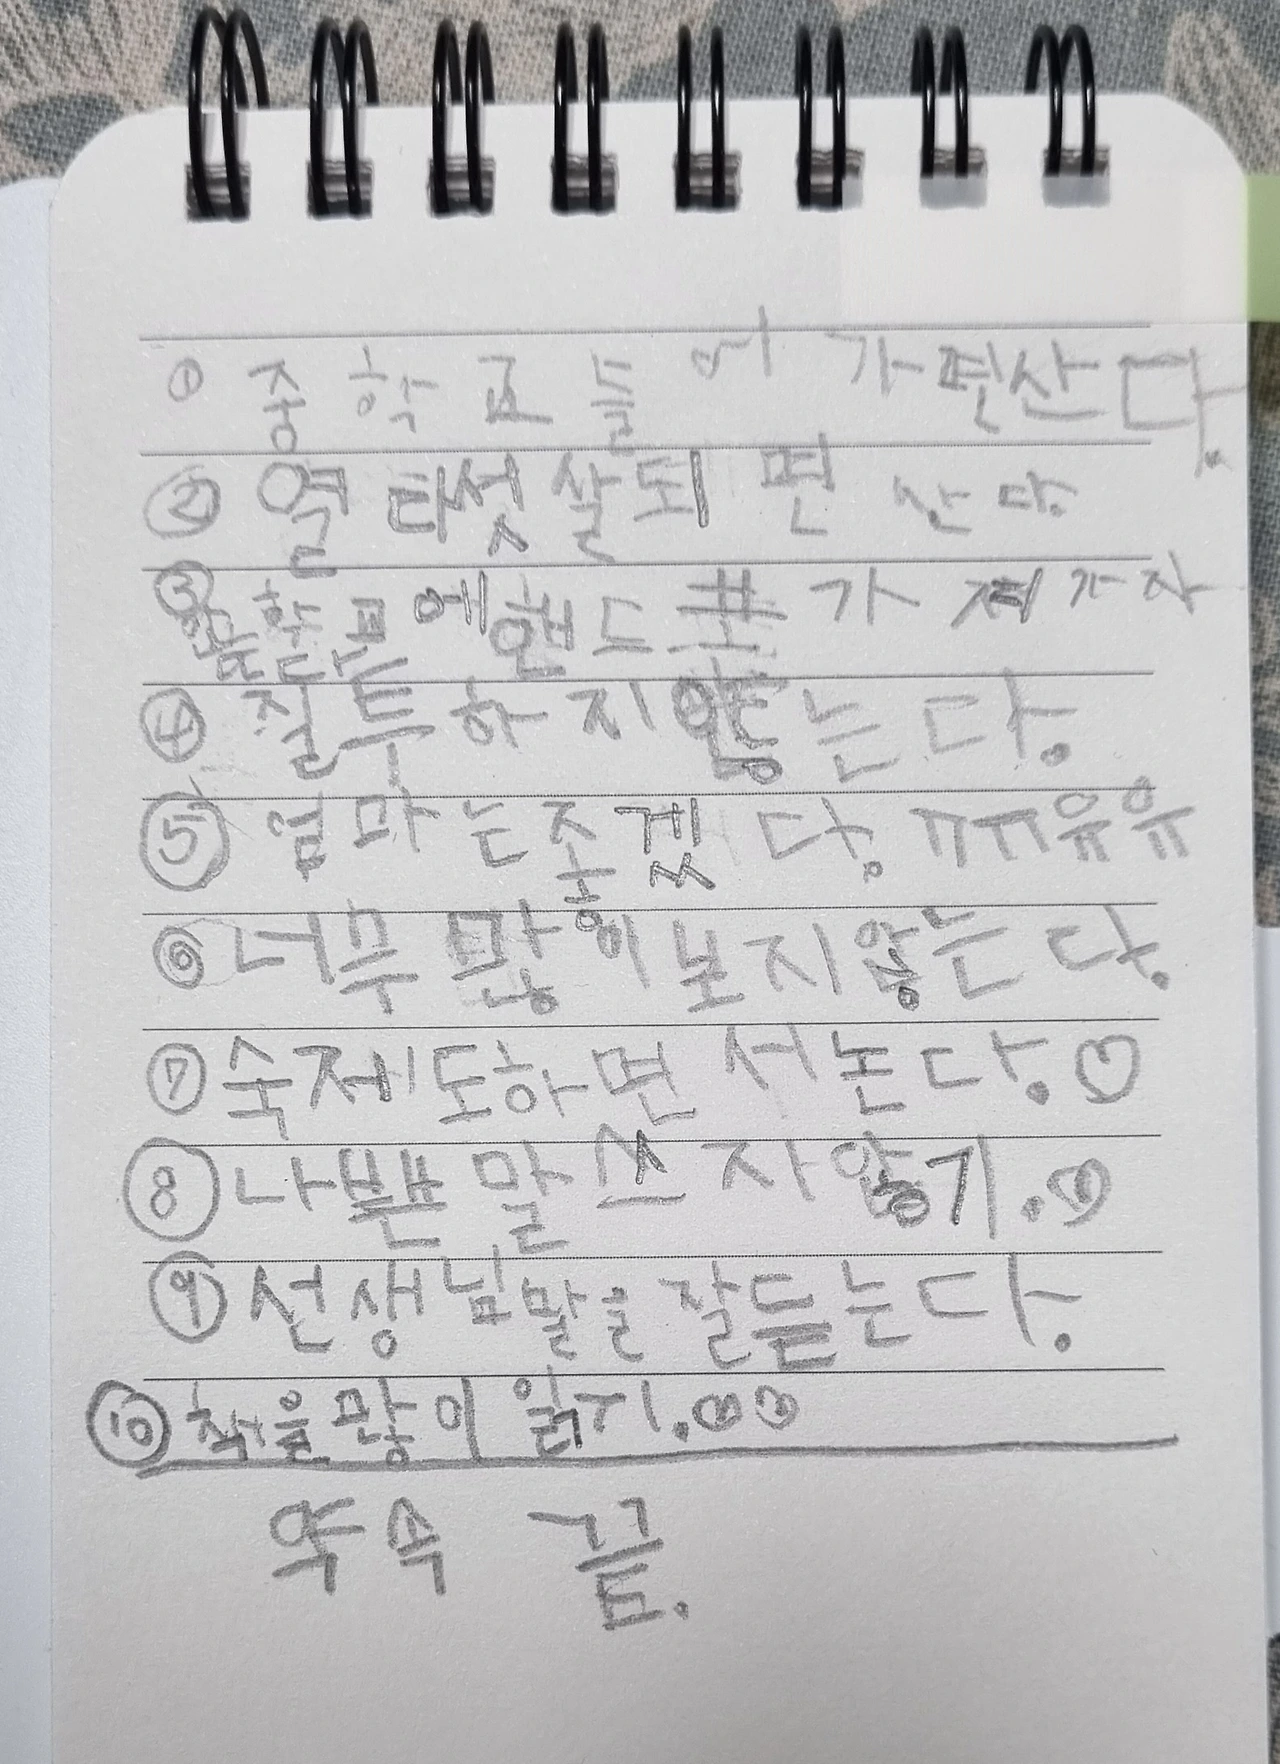 ① 중학교 들어가면산다.
② 열다섯살되면 산다.
③ 중학교에 핸드폰 가져가자
④ 질투하지않는다.
⑤ 엄마는좋겠다. ㅠㅠ유유
⑥ 너무 많이보지않는다.
⑦ 숙제도하면서논다.
⑧ 나쁜말쓰지않기.
⑨ 선생님말을 잘듣는다.
⑩ 책을많이 읽기.
약속 끝.